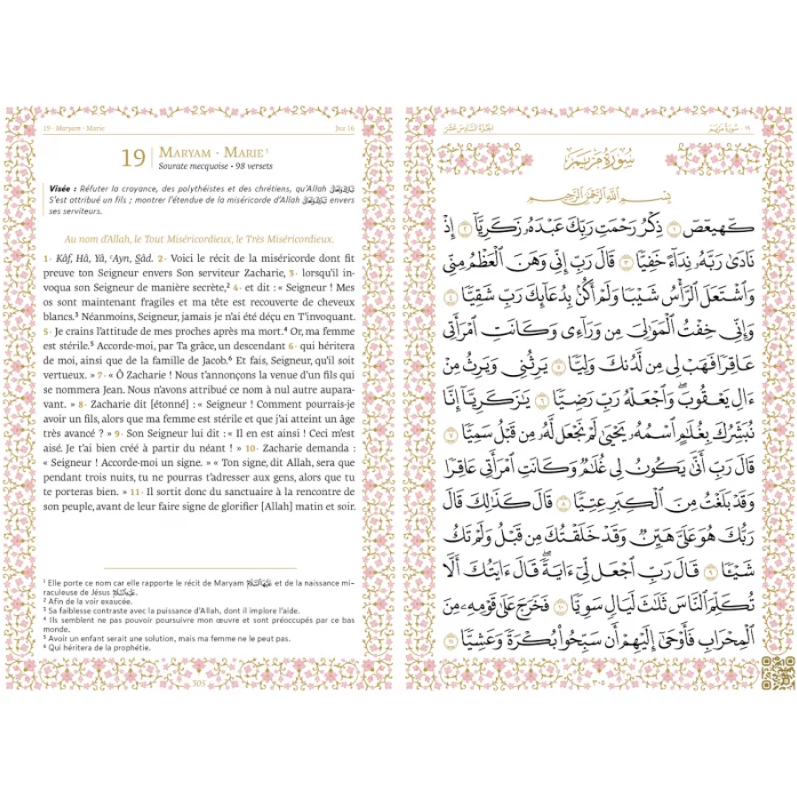 19 · Maryam · Marie
Juz 16
19 MARYAM · MARIE¹
Sourate mecquoise • 98 versets
Visée : Réfuter la croyance, des polythéistes et des chrétiens, qu'Allah
S'est attribué un fils ; montrer l'étendue de la miséricorde d'Allah envers
ses serviteurs.
Au nom d'Allah, le Tout Miséricordieux, le Très Miséricordieux.
1· Kâf, Hâ, Yâ, ʿAyn, Sâd. 2· Voici le récit de la miséricorde dont fit
preuve ton Seigneur envers Son serviteur Zacharie, 3· lorsqu'il in-
voqua son Seigneur de manière secrète,² 4· et dit : « Seigneur ! Mes
os sont maintenant fragiles et ma tête est recouverte de cheveux
blancs.³ Néanmoins, Seigneur, jamais je n'ai été déçu en T'invoquant.
5· Je crains l'attitude de mes proches après ma mort.⁴ Or, ma femme
est stérile.⁵ Accorde-moi, par Ta grâce, un descendant 6· qui héritera
de moi, ainsi que de la famille de Jacob.⁶ Et fais, Seigneur, qu'il soit
vertueux. » 7· « Ô Zacharie ! Nous t'annonçons la venue d'un fils qui
se nommera Jean. Nous n'avons attribué ce nom à nul autre aupara-
vant. » 8· Zacharie dit [étonné] : « Seigneur ! Comment pourrais-je
avoir un fils, alors que ma femme est stérile et que j'ai atteint un âge
très avancé ? » 9· Son Seigneur lui dit : « Il en est ainsi ! Ceci m'est
aisé. Je t'ai bien créé à partir du néant ! » 10· Zacharie demanda :
« Seigneur ! Accorde-moi un signe. » « Ton signe, dit Allah, sera que
pendant trois nuits, tu ne pourras t'adresser aux gens, alors que tu
te porteras bien. » 11· Il sortit donc du sanctuaire à la rencontre de
son peuple, avant de leur faire signe de glorifier [Allah] matin et soir.
¹ Elle porte ce nom car elle rapporte le récit de Maryam et de la naissance mi-
raculeuse de Jésus .
² Afin de la voir exaucée.
³ Sa faiblesse contraste avec la puissance d'Allah, dont il implore l'aide.
⁴ Ils semblent ne pas pouvoir poursuivre mon œuvre et sont préoccupés par ce bas
monde.
⁵ Avoir un enfant serait une solution, mais ma femme ne le peut pas.
⁶ Qui héritera de la prophétie.
305
١٩ · سُورَةُ مَرْيَم
الجُزْءُ السَّادِسَ عَشَرَ
سُورَةُ مَرْيَمَ
بِسْمِ اللَّهِ الرَّحْمَٰنِ الرَّحِيمِ
كٓهيعٓصٓ ١ ذِكْرُ رَحْمَتِ رَبِّكَ عَبْدَهُۥ زَكَرِيَّآ ٢ إِذْ
نَادَىٰ رَبَّهُۥ نِدَآءً خَفِيًّا ٣ قَالَ رَبِّ إِنِّي وَهَنَ ٱلْعَظْمُ مِنِّي
وَٱشْتَعَلَ ٱلرَّأْسُ شَيْبًا وَلَمْ أَكُنۢ بِدُعَآئِكَ رَبِّ شَقِيًّا ٤
وَإِنِّي خِفْتُ ٱلْمَوَٰلِيَ مِن وَرَآءِي وَكَانَتِ ٱمْرَأَتِي
عَاقِرًا فَهَبْ لِي مِن لَّدُنكَ وَلِيًّا ٥ يَرِثُنِي وَيَرِثُ مِنْ
ءَالِ يَعْقُوبَۖ وَٱجْعَلْهُ رَبِّ رَضِيًّا ٦ يَٰزَكَرِيَّآ إِنَّا
نُبَشِّرُكَ بِغُلَٰمٍ ٱسْمُهُۥ يَحْيَىٰ لَمْ نَجْعَل لَّهُۥ مِن قَبْلُ سَمِيًّا ٧
قَالَ رَبِّ أَنَّىٰ يَكُونُ لِي غُلَٰمٌ وَكَانَتِ ٱمْرَأَتِي عَاقِرًا
وَقَدْ بَلَغْتُ مِنَ ٱلْكِبَرِ عِتِيًّا ٨ قَالَ كَذَٰلِكَ قَالَ
رَبُّكَ هُوَ عَلَيَّ هَيِّنٌ وَقَدْ خَلَقْتُكَ مِن قَبْلُ وَلَمْ تَكُ
شَيْـًٔا ٩ قَالَ رَبِّ ٱجْعَل لِّيٓ ءَايَةًۚ قَالَ ءَايَتُكَ أَلَّا
تُكَلِّمَ ٱلنَّاسَ ثَلَٰثَ لَيَالٍ سَوِيًّا ١٠ فَخَرَجَ عَلَىٰ قَوْمِهِۦ مِنَ
ٱلْمِحْرَابِ فَأَوْحَىٰٓ إِلَيْهِمْ أَن سَبِّحُوا۟ بُكْرَةً وَعَشِيًّا ١١
٣٠٥